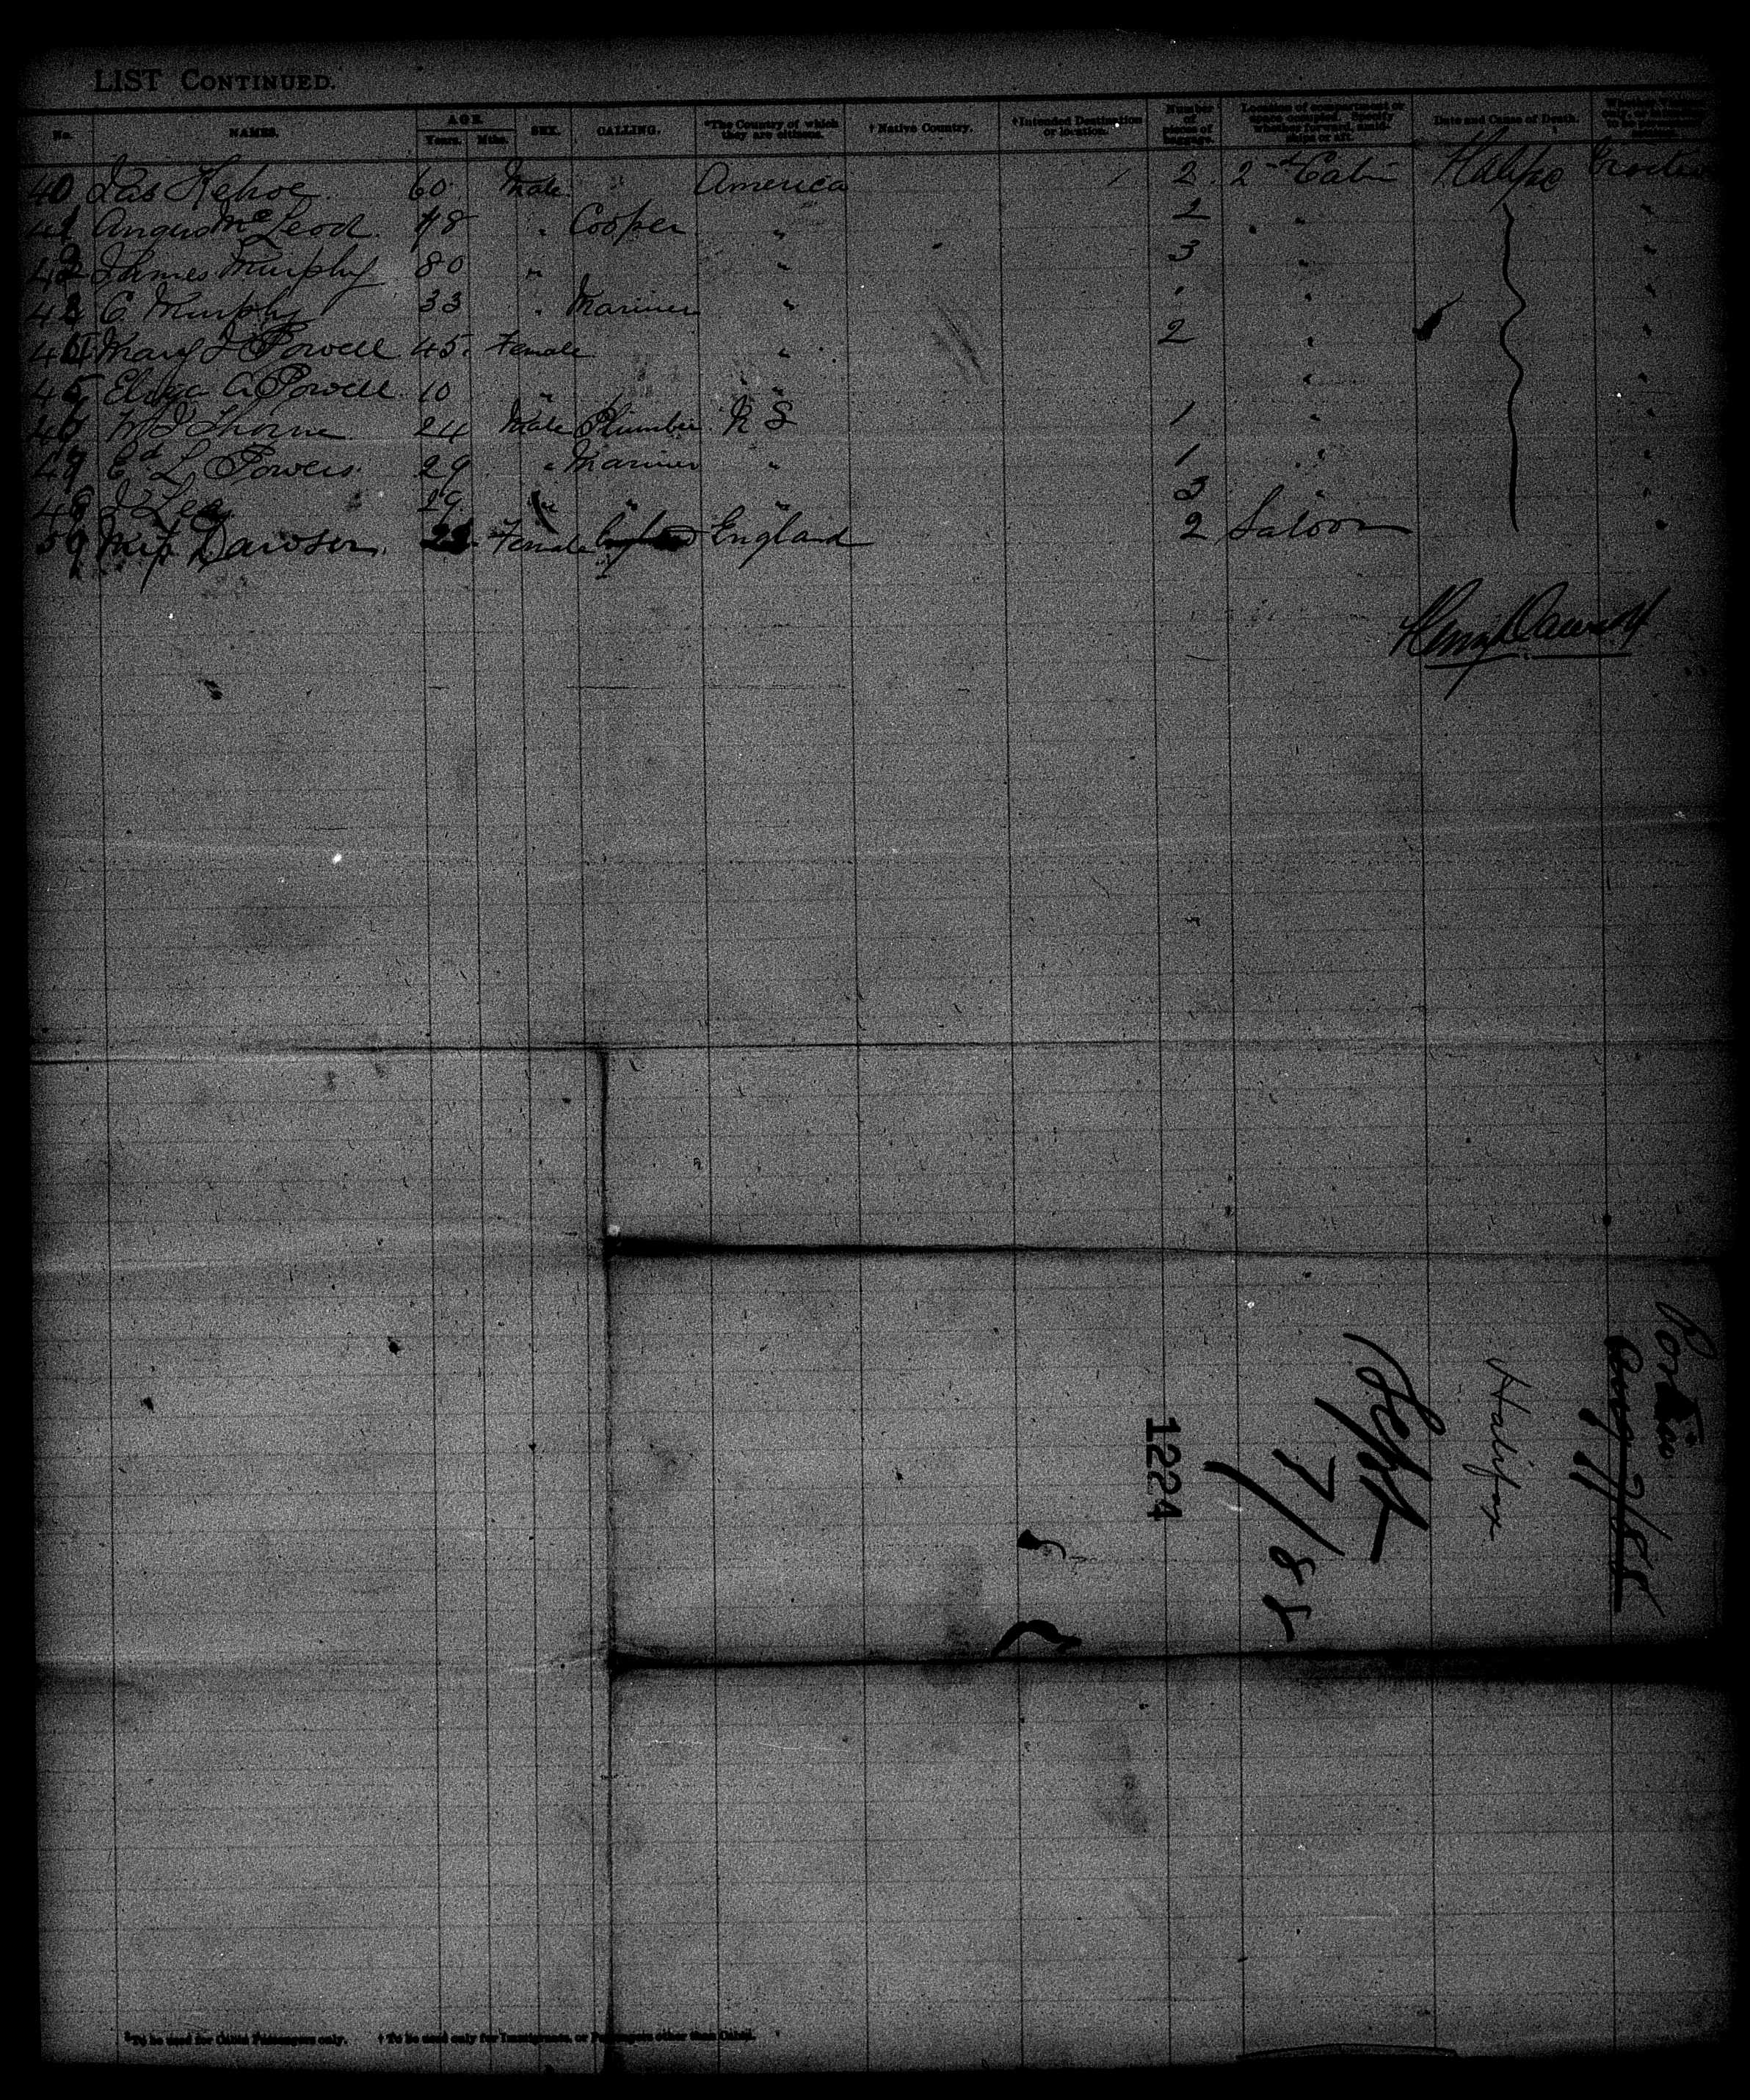 LIST CONTINUED.
No. NAMES. AGE. Years. Mths. SEX. CALLING. *The Country of which they are citizens. † Native Country. †Intended Destination or location. Number of pieces of baggage. Location of compartment or space occupied. Specify whether forward, amidships or aft. Date and Cause of Death.
40 Jas Kehoe 60 Male America 2 2nd Cabin
41 Angus McLeod 48 " Cooper " 2 "
42 James Murphy 80 " " 3 "
43 C Murphy 33 " Mariner " " "
44 Mary J Powell 45 Female " 2 "
45 Eliza A Powell 10 " " "
46 W J Thorne 24 Male Plumber N S 1 "
47 Ed L Powers 29 " Mariner " 1 "
48 J Lea 29 " " " 3 "
Miss Dawson Female England 2 Saloon
Henry Dawson
Halifax
Sept
7/88
1224
*To be used for Cabin Passengers only. † To be used only for Immigrants, or Passengers other than Cabin.